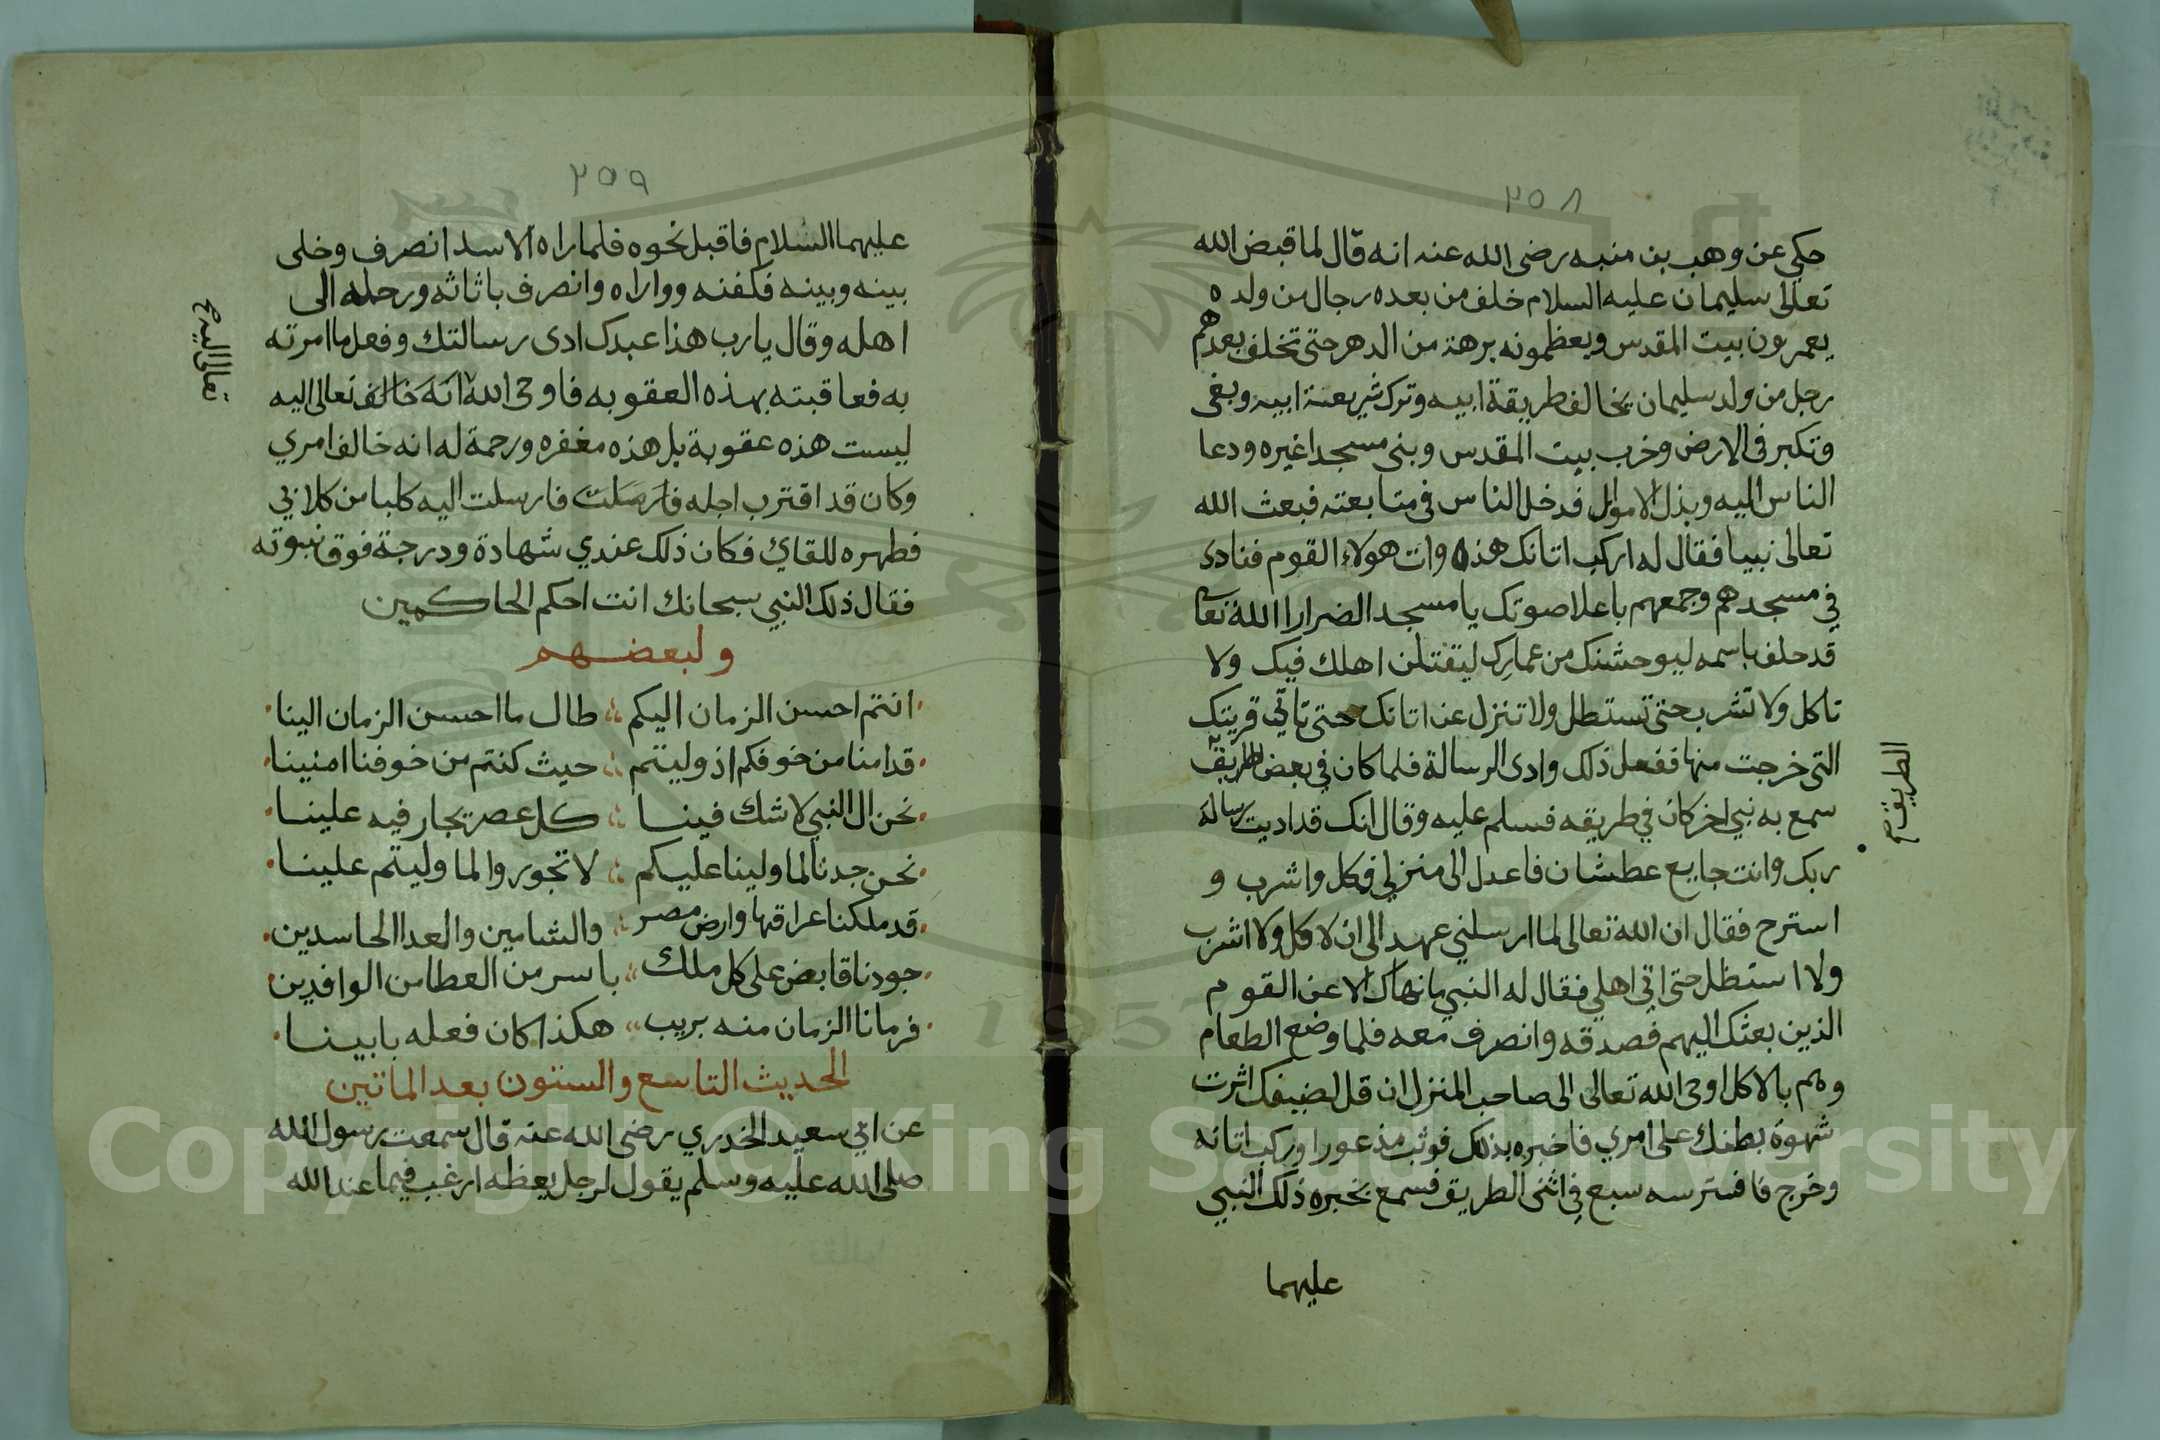 ٢٥٨
حكي عن وهب بن منبه رضى الله عنه انه قال لما قبض الله
تعالى سليمان عليه السلام خلف من بعده رجال من ولده
يعمرون بيت المقدس ويعظمونه برهة من الدهر حتى تخلف بعدهم
رجل من ولد سليمان يخالف طريقة ابيه وترك شريعة ابيه وبغى
وتكبر فى الارض وخرب بيت المقدس وبنى مسجدا غيره ودعا
الناس اليه وبذل الاموال فدخل الناس فى متابعته فبعث الله
تعالى نبيا فقال له اركب اتانك هذه وات هولاء القوم فنادى
في مسجدهم وجمعهم باعلا صوتك يا مسجد الضرار ان الله تعالى
قد حلف باسمه ليوحشنك من عمارك ليقتلن اهلك فيك ولا
تاكل ولا تشرب حتى تستطل ولا تنزل عن اتانك حتى تاتي قريتك
التى خرجت منها ففعل ذلك وادى الرسالة فلما كان في بعض الطريق
الطريق صح
سمع به نبي اخر كان في طريقه فسلم عليه وقال انك قد اديت رسالة
ربك وانت جايع عطشان فاعدل الى منزلي فكل واشرب و
استرح فقال ان الله تعالى لما ارسلني عهد الى ان لا اكل ولا اشرب
ولا استظل حتى اتي اهلي فقال له النبي ما نهاك الا عن القوم
الذين بعثك اليهم فصدقه وانصرف معه فلما وضع الطعام
وهم بالاكل اوحى الله تعالى الى صاحب المنزل ان قل لضيفك اثرت
شهوة بطنك على امري فاخبره بذلك فوثب مذعورا وركب اتانه
وخرج فافترسه سبع في اثنى الطريق فسمع بخبره ذلك النبي
عليهما
٢٥٩
عليهما السلام فاقبل نحوه فلما راه الاسد انصرف وخلى
بينه وبينه فكفنه وواراه وانصرف باثاثه ورحله الى
اهله وقال يا رب هذا عبدك ادى رسالتك وفعل ما امرته
به فعاقبته بهذه العقوبه فاوحى الله انه خالف تعالى اليه
تعالى اليه صح
ليست هذه عقوبة بل هذه مغفره ورحمة له انه خالف امري
وكان قد اقترب اجله فارسلت فارسلت اليه كلبا من كلابي
فطهره للقاي فكان ذلك عندي شهادة ودرجة فوق نبوته
فقال ذلك النبي سبحانك انت احكم الحاكمين
ولبعضهم
انتم احسن الزمان اليكم طال ما احسن الزمان الينا
قد امنا من خوفكم اذ وليتم حيث كنتم من خوفنا امنينا
نحن ال النبي لا شك فينا كل عصر يجار فيه علينا
نحن جدنا لما ولينا عليكم لا تجوروا لما وليتم علينا
قد ملكنا عراقها وارض مصر والشامين والعدا الحاسدين
جودنا قابض على كل ملك باسر من العطا من الوافدين
فرمانا الزمان منه بريب هكذا كان فعله بابينا
الحديث التاسع والستون بعد الماتين
عن ابي سعيد الخدري رضى الله عنه قال سمعت رسول الله
صلى الله عليه وسلم يقول لرجل يعظه ارغب فيما عند الله
Copyright © King Saud University
1957